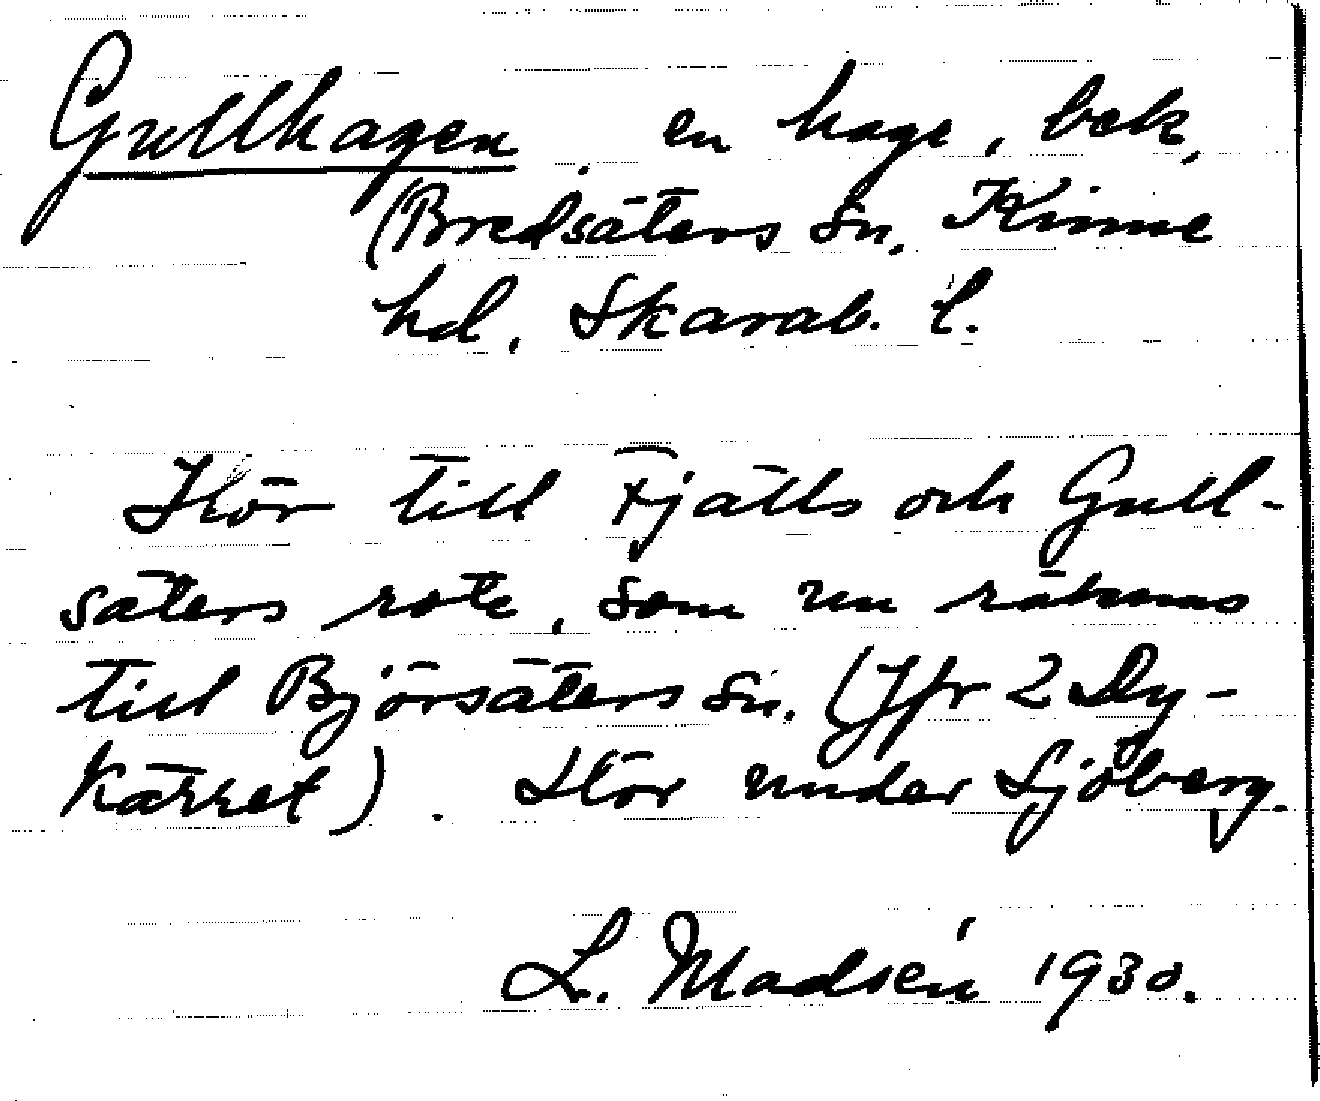 Gullhagen, en hage, bek,
(Bredsäters sn, Kinne
hd, Skarab. l.
Hör till Fjälls och Gull-
säters rote, som nu räknas
till Björsäters sn. (Jfr 2 Dy-
kärret). Hör under Sjöberg.
L. Madsén 1930.